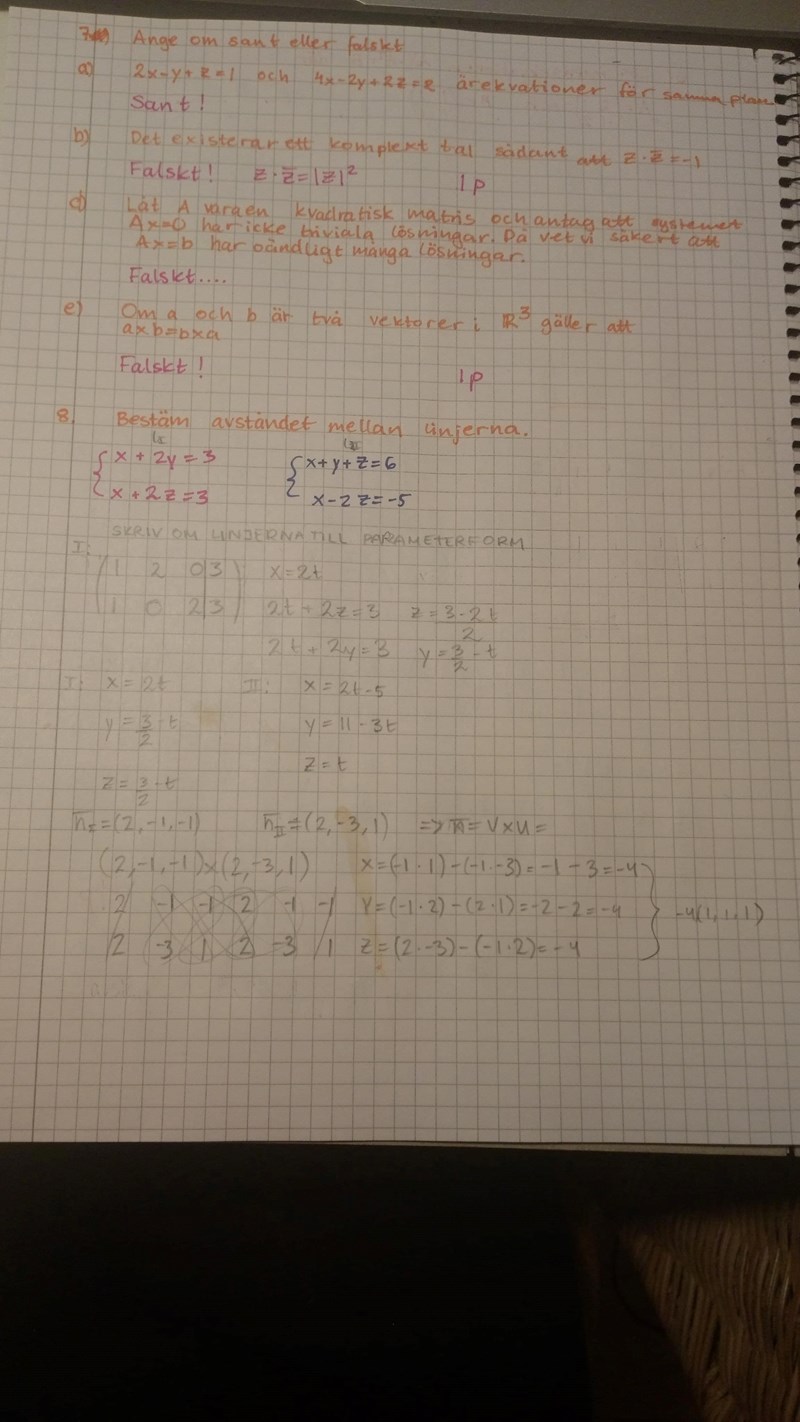 Ange om sant eller falskt
a) 2x-y+z=1 och 4x-2y+2z=2 är ekvationer för samma plan
Sant!
b) Det existerar ett komplext tal sådant att z·z̄=-1
Falskt! z·z̄=|z|² 1p
d) Låt A vara en kvadratisk matris och antag att systemet
Ax=0 har icke triviala lösningar. Då vet vi säkert att
Ax=b har oändligt många lösningar.
Falskt....
e) Om a och b är två vektorer i ℝ³ gäller att
axb=bxa
Falskt! 1p
8. Bestäm avståndet mellan linjerna.
x+2y=3 x+y+z=6
x+2z=3 x-2z=-5
SKRIV OM LINJERNA TILL PARAMETERFORM
I:
1 2 0|3 x=2t
1 0 2|3 2t+2z=3 z=3-2t/2
2t+2y=3 y=3/2-t
I: x=2t II: x=2t-5
y=3/2-t y=11-3t
z=t
z=3/2-t
n̄_I=(2,-1,-1) n̄_II=(2,-3,1) => n̄=V×U=
(2,-1,-1)×(2,-3,1) x=(-1·1)-(-1·-3)=-1-3=-4
2 -1 -1 2 -1 -1 Y=(-1·2)-(2·1)=-2-2=-4 -4(1,1,1)
2 -3 1 2 -3 1 Z=(2·-3)-(-1·2)=-4